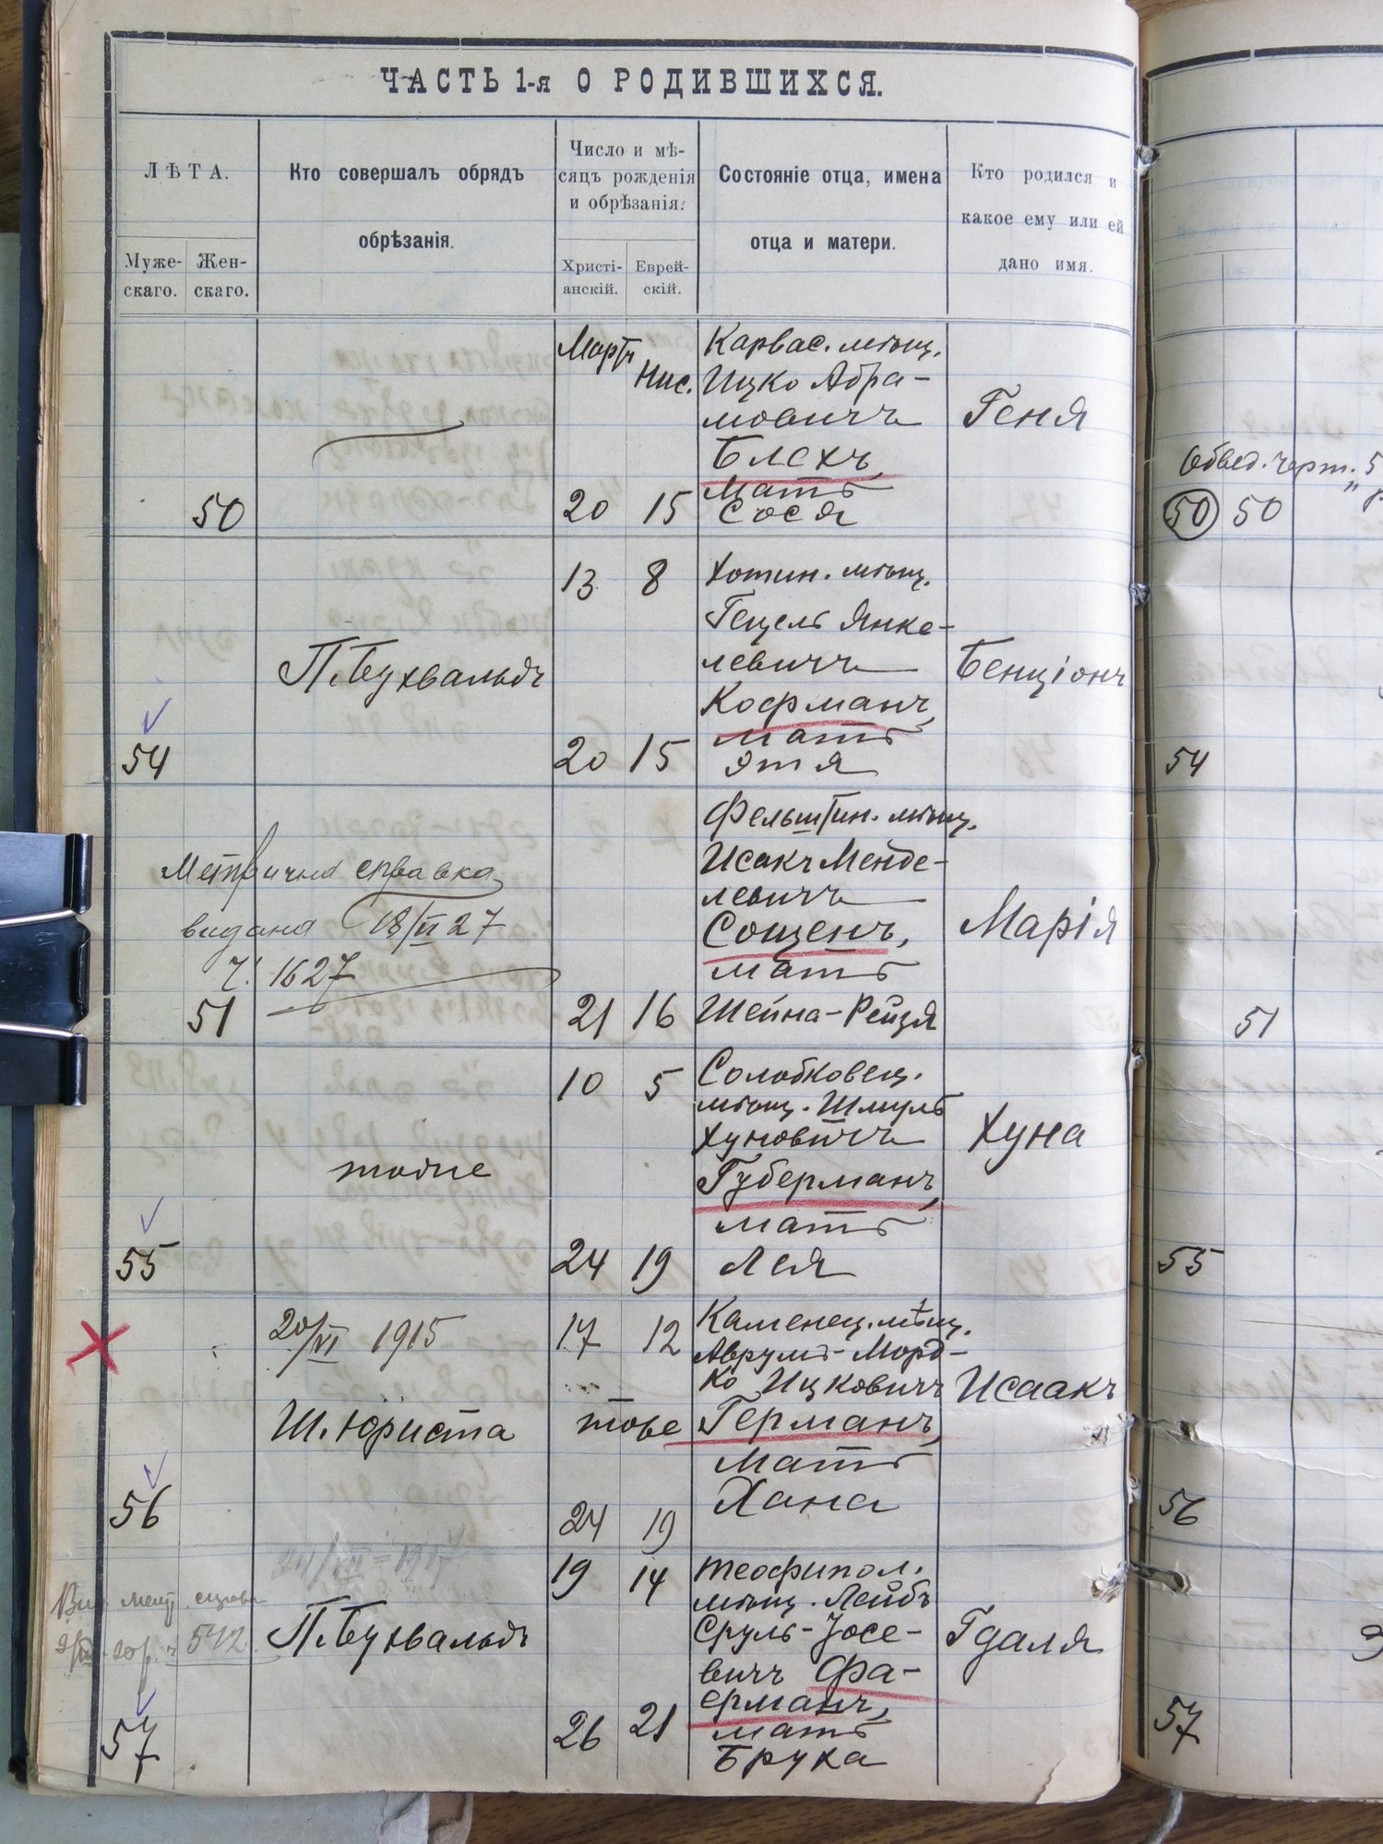 ЧАСТЬ 1-я О РОДИВШИХСЯ.
ЛѢТА.
Муже-
скаго.
Жен-
скаго.
Кто совершалъ обрядъ
обрѣзанія.
Число и мѣ-
сяцъ рожденія
и обрѣзанія.
Христі-
анскій.
Еврей-
скій.
Состояніе отца, имена
отца и матери.
Кто родился и
какое ему или ей
дано имя.
Мартъ
Нис.
Карвас. мѣщ.
Ицко Абра-
мовичъ
Блехъ,
мать
Сося
Геня
50
20 15
Обвед. черт. 5
50 50
13 8
Хотин. мѣщ.
Гецель Янке-
левичъ
Кофманъ,
мать
Этя
П. Бухвальдъ
Бенціонъ
54
20 15
54
Фельштин. мѣщ.
Исакъ Менде-
левичъ
Сощенъ,
мать
Шейна-Рейзя
Марія
Метрична справка
видана 18/II 27
Ч. 1627
51
21 16
51
10 5
Солобковец.
мѣщ. Шмуль
Хуновичъ
Губерманъ,
мать
Лея
тоже
Хуна
55
24 19
55
20/VI 1915
Ш. Юриста
17 12
тоже
Каменец. мѣщ.
Аврумъ-Морд-
ко Ицковичъ
Германъ,
мать
Хана
Исаакъ
56
24 19
56
19 14
Теофипол.
мѣщ. Лейбъ
Сруль-Іосе-
вичъ Фа-
ерманъ,
мать
Бруха
метр. справ
542
П. Бухвальдъ
Гдаля
57
26 21
57